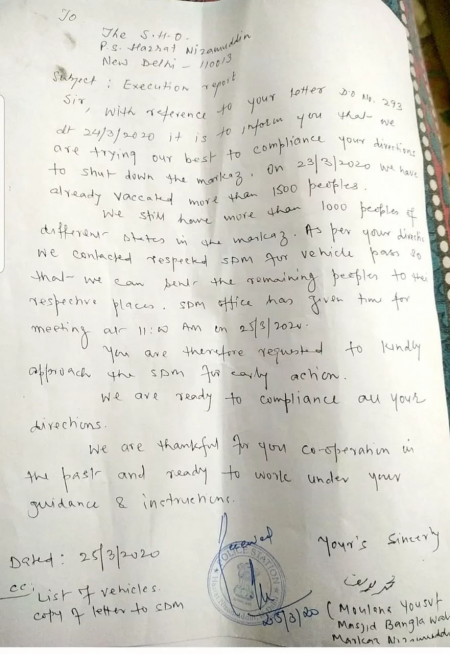 To
The S.H.O.
P.S. Hazrat Nizamuddin
New Delhi - 110013
Subject : Execution report
Sir, with reference to your letter DO No. 293
dt 24/3/2020 it is to inform you that we
are trying our best to compliance your directions
to shut down the markaz. On 23/3/2020 we have
already vaccated more than 1500 peoples.
We still have more than 1000 peoples of
different states in the markaz. As per your
we contacted respected SDM for vehicle pass so
that we can sent the remaining peoples to the
respective places. SDM office has given time for
meeting at 11:00 AM on 25/3/2020.
You are therefore requested to kindly
approach the SDM for early action.
We are ready to compliance all your
directions.
We are thankful for you co-operation in
the past and ready to work under your
guidance & instructions.
Received
Your's Sincerly
Dated : 25/3/2020
cc: List of vehicles.
copy of letter to SDM
25/3/20
(Moulana Yousuf
Masjid Bangla
Markaz Nizamuddin